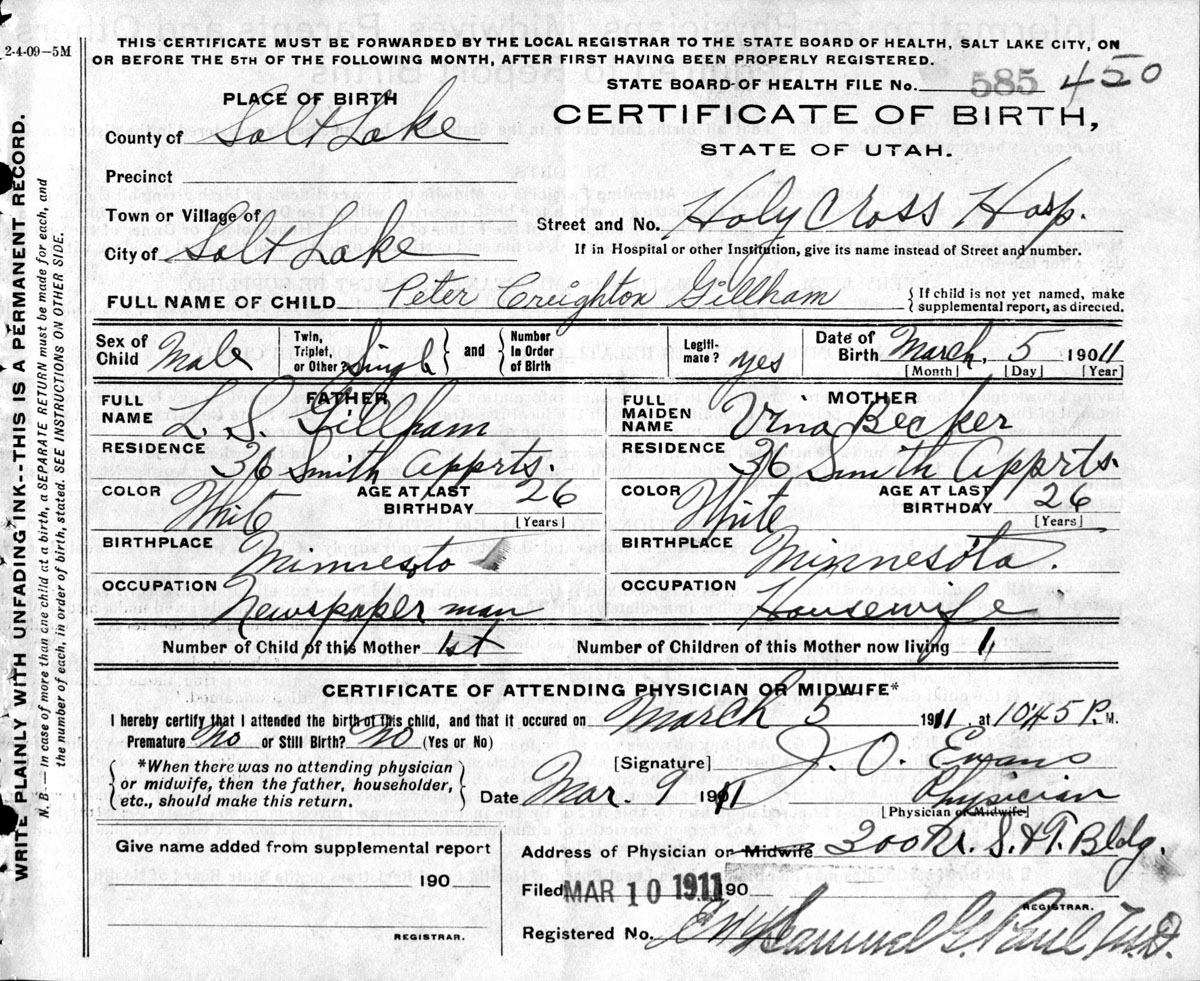 2-4-09—5M
THIS CERTIFICATE MUST BE FORWARDED BY THE LOCAL REGISTRAR TO THE STATE BOARD OF HEALTH, SALT LAKE CITY, ON
OR BEFORE THE 5TH OF THE FOLLOWING MONTH, AFTER FIRST HAVING BEEN PROPERLY REGISTERED.
STATE BOARD OF HEALTH FILE No. 585 450
PLACE OF BIRTH
CERTIFICATE OF BIRTH,
County of Salt Lake
STATE OF UTAH.
Precinct
Town or Village of
Street and No. Holy Cross Hosp.
City of Salt Lake
If in Hospital or other Institution, give its name instead of Street and number.
FULL NAME OF CHILD Peter Creighton Gillham { If child is not yet named, make
supplemental report, as directed.
Sex of Child Male Twin, Triplet, or Other? Single } and { Number In Order of Birth Legiti-mate? yes Date of Birth March, 5 1911
[Month] [Day] [Year]
FATHER MOTHER
FULL NAME L. S. Gillham FULL MAIDEN NAME Erna Becker
RESIDENCE 36 Smith Apprts. RESIDENCE 36 Smith Apprts.
COLOR White AGE AT LAST BIRTHDAY 26 [Years] COLOR White AGE AT LAST BIRTHDAY 26 [Years]
BIRTHPLACE Minnesota BIRTHPLACE Minnesota.
OCCUPATION Newspaper man OCCUPATION Housewife
Number of Child of this Mother 1st Number of Children of this Mother now living 1
CERTIFICATE OF ATTENDING PHYSICIAN OR MIDWIFE*
I hereby certify that I attended the birth of this child, and that it occured on March 5 1911, at 1045 P. M.
Premature No or Still Birth? No (Yes or No)
[Signature] J. C. Evans
{ *When there was no attending physician
or midwife, then the father, householder,
etc., should make this return. }
Date Mar. 9 1911 Physician
[Physician or Midwife]
Give name added from supplemental report
Address of Physician or Midwife 200 S. & T. Bldg.
190
Filed MAR 10 1911 190
REGISTRAR.
REGISTRAR.
Registered No. Samuel G. Paul M.D.
WRITE PLAINLY WITH UNFADING INK--THIS IS A PERMANENT RECORD.
N. B.—In case of more than one child at a birth, a SEPARATE RETURN must be made for each, and
the number of each, in order of birth, stated. SEE INSTRUCTIONS ON OTHER SIDE.